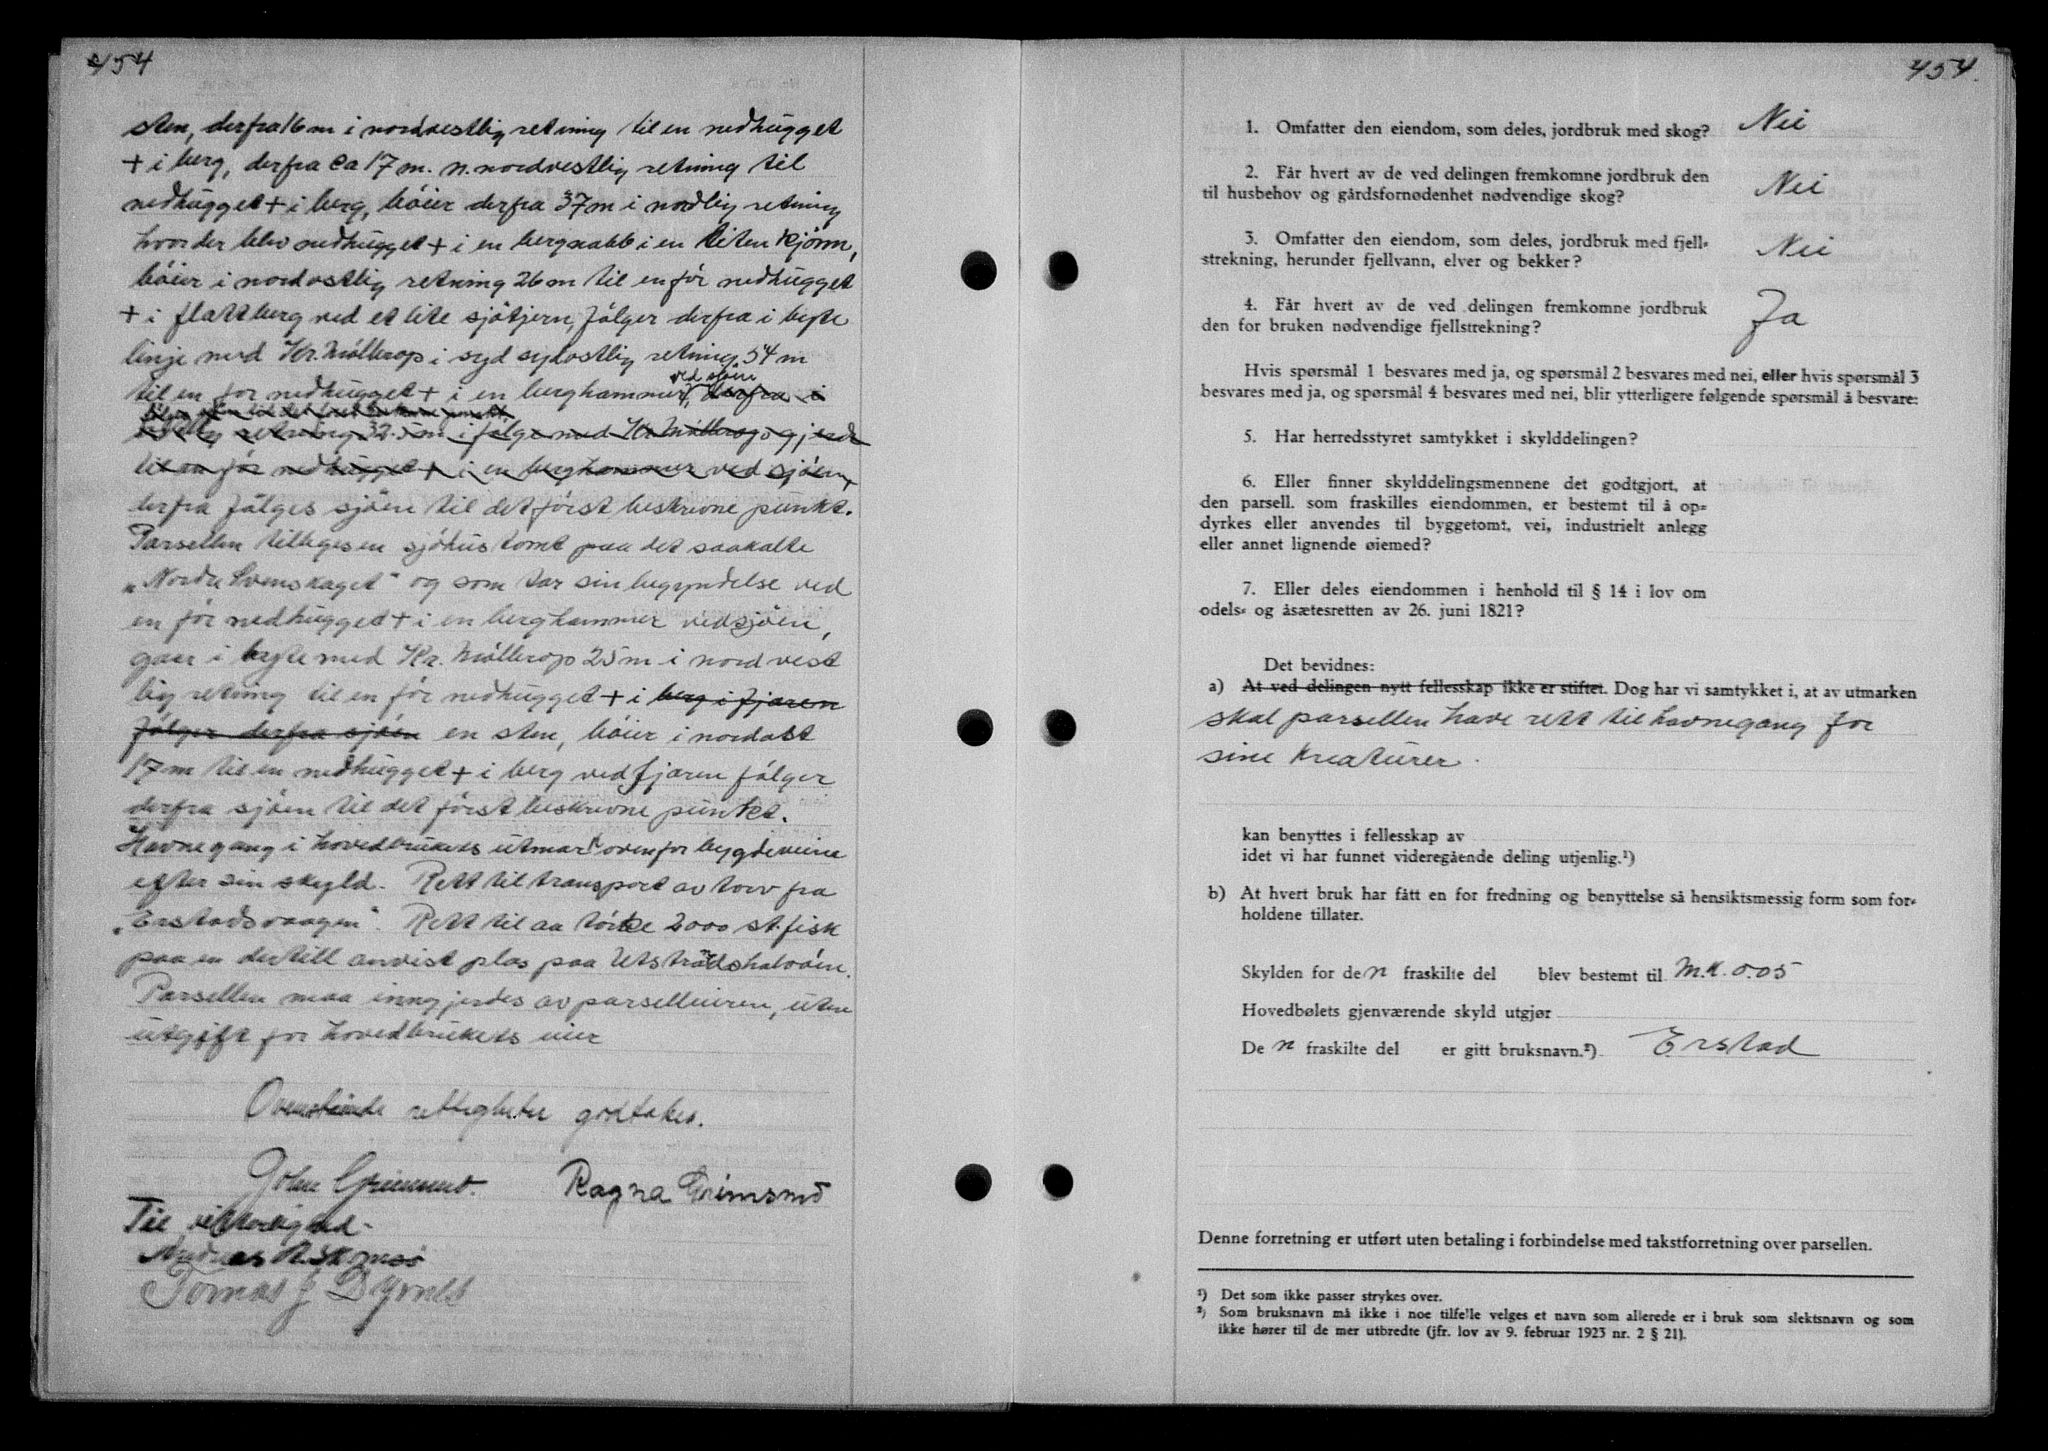 454
sten, derfra 16 m i nordvestlig retning til en nedhugget
+ i berg, derfra ca 17 m. n. nordvestlig retning til
nedhugget + i berg, bøier derfra 37 m i nordlig retning
hvor der blev nedhugget + i en bergnabb i en liten kjønn,
bøier i nordostlig retning 26 m til en før nedhugget
+ i flatt berg ved et lite sjøtjern, følger derfra i byte
linje med Kr. Møllerop i syd sydostlig retning 54 m
ved sjøen
til en før nedhugget + i en berghammer, derfra i
retning 32.5 m i følge med Kr. Møllerops gjerde
til en før nedhugget + i en berghammer ved sjøen,
derfra følges sjøen til det først beskrevne punkt.
Parsellen tillegges en sjøhustomt paa det saakalte
"Nordre Svenskaget" og som tar sin begyndelse ved
en før nedhugget + i en berghammer ved sjøen,
gaar i byte med Kr. Møllerop 25 m i nordvest
lig retning til en før nedhugget + i berg i fjæren
følger derfra sjøen en sten, bøier i nordost
17 m til en nedhugget + i berg ved fjæren følger
derfra sjøen til det først beskrevne punkt.
Havnegang i hovedbrukets utmark ovenfor bygdeveien
efter sin skyld. Rett til transport av torv fra
"Erstadsvaagen". Rett til aa tørke 2000 st. fisk
paa en dertill anvist plas paa
Parsellen maa inngjerdes av parselleieren, uten
utgift for hovedbrukets eier
Ovenstående rettigheter godtakes.
John Grimsmo. Ragna Grimsmo
Til vitterlighet
Tomas J Dyrnes
454.
1. Omfatter den eiendom, som deles, jordbruk med skog? Nei
2. Får hvert av de ved delingen fremkomne jordbruk den
til husbehov og gårdsfornødenhet nødvendige skog? Nei
3. Omfatter den eiendom, som deles, jordbruk med fjell-
strekning, herunder fjellvann, elver og bekker? Nei
4. Får hvert av de ved delingen fremkomne jordbruk
den for bruken nødvendige fjellstrekning? Ja
Hvis spørsmål 1 besvares med ja, og spørsmål 2 besvares med nei, eller hvis spørsmål 3
besvares med ja, og spørsmål 4 besvares med nei, blir ytterligere følgende spørsmål å besvare:
5. Har herredsstyret samtykket i skylddelingen?
6. Eller finner skylddelingsmennene det godtgjort, at
den parsell. som fraskilles eiendommen, er bestemt til å op-
dyrkes eller anvendes til byggetomt, vei, industrielt anlegg
eller annet lignende øiemed?
7. Eller deles eiendommen i henhold til § 14 i lov om
odels- og åsætesretten av 26. juni 1821?
Det bevidnes:
a) At ved delingen nytt fellesskap ikke er stiftet. Dog har vi samtykket i, at av utmarken
skal parsellen have rett til havnegang for
sine kreaturer.
kan benyttes i fellesskap av
idet vi har funnet videregående deling utjenlig.¹)
b) At hvert bruk har fått en for fredning og benyttelse så hensiktsmessig form som for-
holdene tillater.
Skylden for den fraskilte del blev bestemt til M.K. 0.05
Hovedbølets gjenværende skyld utgjør
Den fraskilte del er gitt bruksnavn.²) Erstad
Denne forretning er utført uten betaling i forbindelse med takstforretning over parsellen.
¹) Det som ikke passer strykes over.
²) Som bruksnavn må ikke i noe tilfelle velges et navn som allerede er i bruk som slektsnavn og som
ikke hører til de mer utbredte (jfr. lov av 9. februar 1923 nr. 2 § 21).